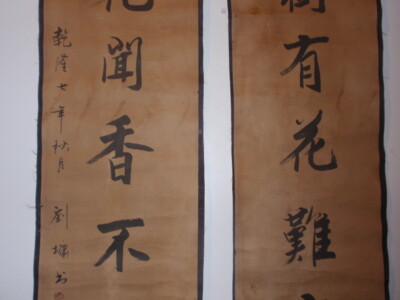 樹有花難
花聞香不
乾隆七年秋月 劉墉書